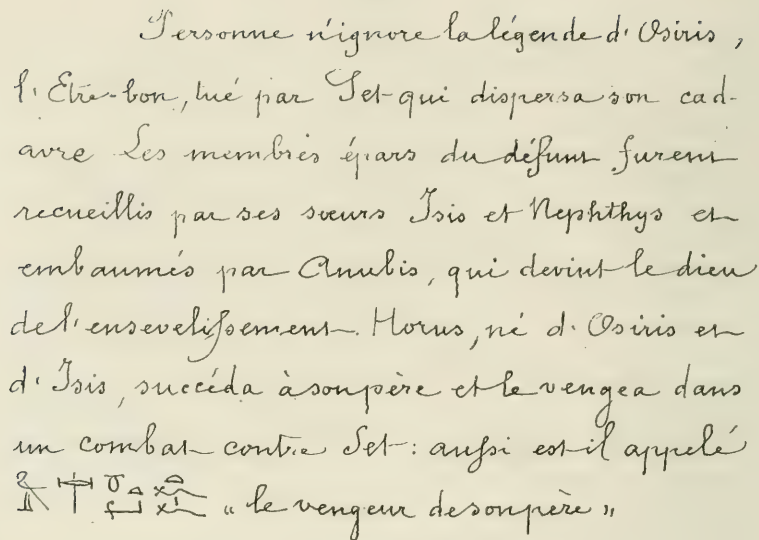 Personne n'ignore la légende d'Osiris,
l'Etre-bon, tué par Set qui dispersa son cad-
avre Les membres épars du défunt furent
recueillis par ses sœurs Isis et Nephthys et
embaumés par Anubis, qui devint le dieu
de l'ensevelissement. Horus, né d'Osiris et
d'Isis, succéda à son père et le vengea dans
un combat contre Set : aussi est-il appelé
« le vengeur de son père »